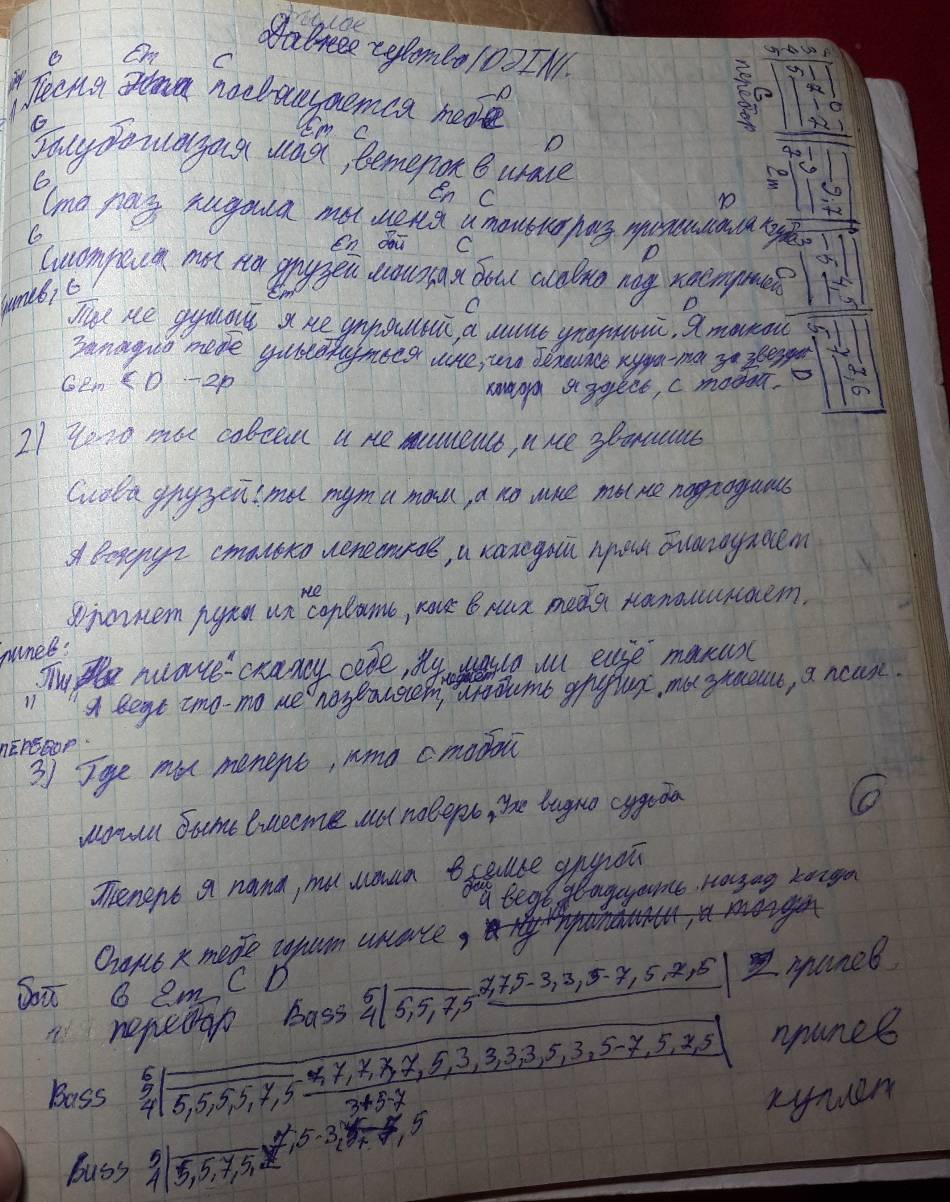 былое
Давнее чувство (DJIN).
G Em C D
1. Песня эта посвящается тебе
G Em C D
Голубоглазая моя, ветерок в июле
G Em C D
Сто раз кидала ты меня и только раз прижимала к губе
G Em бой C D
Смотрела ты на друзей моих, а я был словно под кастрюлей
Припев: G Em C D
Ты не думай, я не упрямый, а лишь упорный. Я такой
Западло тебе улыбнуться мне, чего бежишь куда-то за звездой
G Em C D - 2р когда я здесь, с тобой.
2) Чего ты совсем и не пишешь, и не звонишь
Слова друзей: ты тут и там, а ко мне ты не подходишь
А вокруг столько лепестков, и каждый прям благоухает
Дрогнет рука их не сорвать, как в них тебя напоминает.
Припев:
"плачь" - скажу себе, Ну мало ли ещё таких
" А ведь что-то не позволяет, любить других, ты знаешь, я псих.
ПЕРЕБОР
3) Где ты теперь, кто с тобой
могли быть вместе мы поверь, Уж видно судьба
Теперь я папа, ты мама в семье другой
бой а ведь двадцать назад когда
Огонь к тебе горит иначе, а ну припомни, а тогда
бой G Em C D
перебор Bass 5 4 | 5,5,7,5 7,7,5-3,3,5-7,5,7,5 | припев
Bass 6 5 4 | 5,5,5,5,7,5 7,7,7,7,7,5,3,3,3,3,5,3,5-7,5,7,5 | припев
3+5-7
куплет
Bass 5 4 | 5,5,7,5, 7,5-3, 5
перебор
G Em C D
6